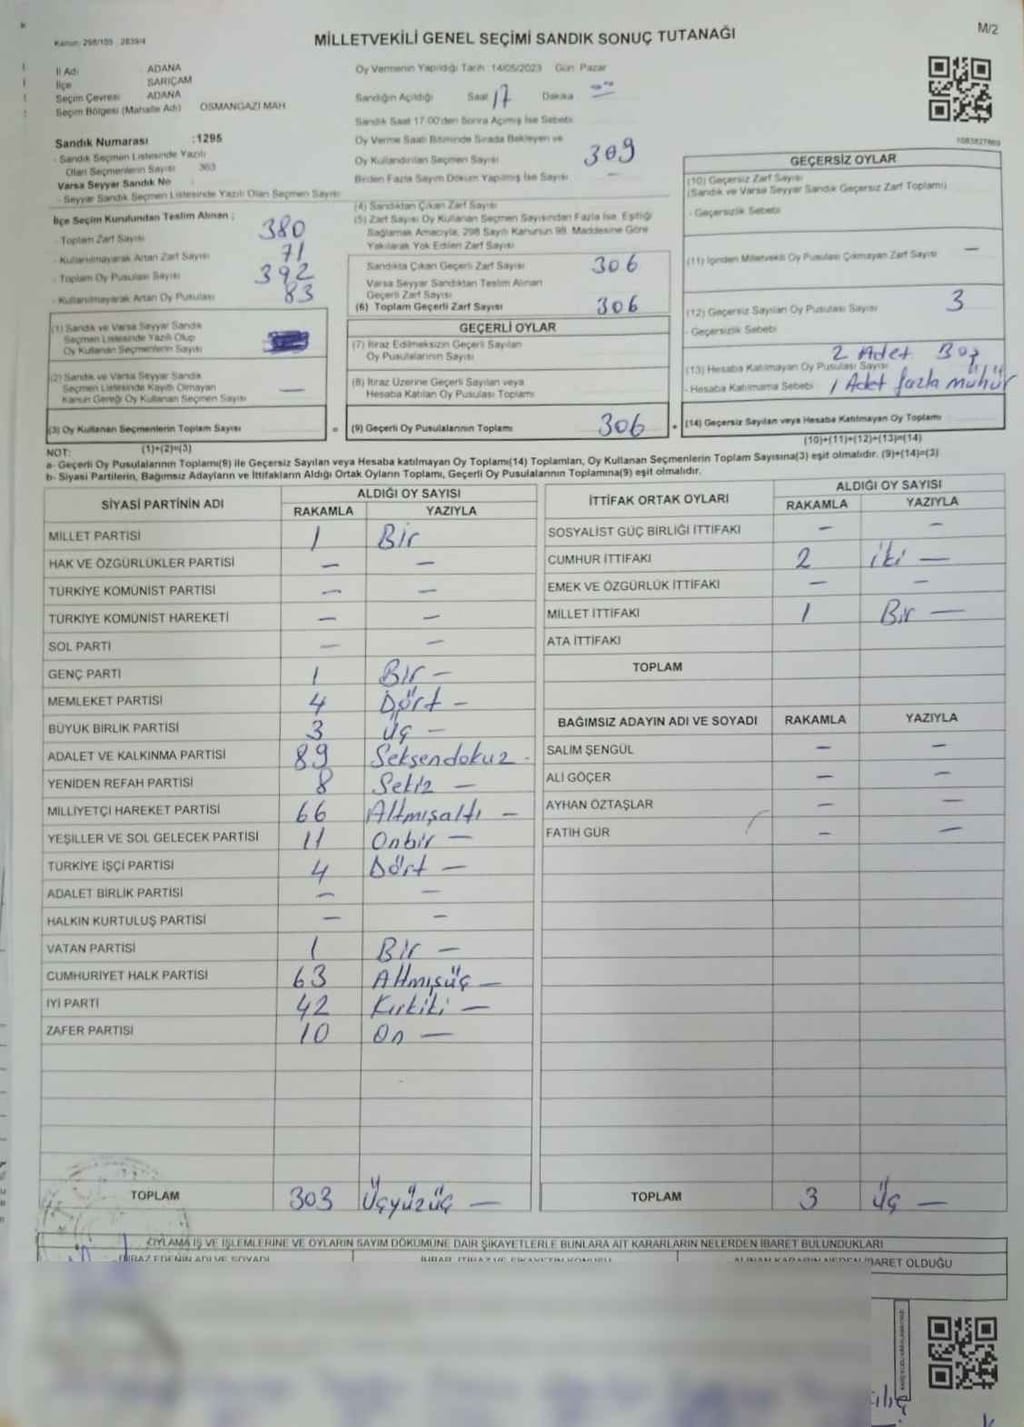 Kanun: 298/105 2839/4
MİLLETVEKİLİ GENEL SEÇİMİ SANDIK SONUÇ TUTANAĞI
M/2
İl Adı ADANA
İlçe SARIÇAM
Seçim Çevresi ADANA
Seçim Bölgesi (Mahalle Adı) OSMANGAZİ MAH
Sandık Numarası :1295
- Sandık Seçmen Listesinde Yazılı
Olan Seçmenlerin Sayısı 363
Varsa Seyyar Sandık No
- Seyyar Sandık Seçmen Listesinde Yazılı Olan Seçmen Sayısı
Oy Vermenin Yapıldığı Tarih :14/05/2023 Gün: Pazar
Sandığın Açıldığı Saat 17 Dakika
Sandık Saat 17.00'den Sonra Açılmış İse Sebebi
Oy Verme Saati Bitiminde Sırada Bekleyen ve
Oy Kullandırılan Seçmen Sayısı 309
Birden Fazla Sayım Döküm Yapılmış İse Sayısı —
İlçe Seçim Kurulundan Teslim Alınan ;
- Toplam Zarf Sayısı 380
- Kullanılmayarak Artan Zarf Sayısı 71
- Toplam Oy Pusulası Sayısı 392
- Kullanılmayarak Artan Oy Pusulası 83
(1) Sandık ve Varsa Seyyar Sandık
Seçmen Listesinde Yazılı Olup
Oy Kullanan Seçmenlerin Sayısı
(2) Sandık ve Varsa Seyyar Sandık
Seçmen Listesinde Kaydı Olmayan
Kanun Gereği Oy Kullanan Seçmen Sayısı —
(3) Oy Kullanan Seçmenlerin Toplam Sayısı
(1)+(2)=(3)
(4) Sandıktan Çıkan Zarf Sayısı
(5) Zarf Sayısı Oy Kullanan Seçmen Sayısından Fazla İse, Eşitliği
Sağlamak Amacıyla, 298 Sayılı Kanunun 98. Maddesine Göre
Yakılarak Yok Edilen Zarf Sayısı
Sandıkta Çıkan Geçerli Zarf Sayısı 306
Varsa Seyyar Sandıktan Teslim Alınan
Geçerli Zarf Sayısı
(6) Toplam Geçerli Zarf Sayısı 306
GEÇERLİ OYLAR
(7) İtiraz Edilmeksizin Geçerli Sayılan
Oy Pusulalarının Sayısı
(8) İtiraz Üzerine Geçerli Sayılan veya
Hesaba Katılan Oy Pusulası Toplamı
= (9) Geçerli Oy Pusulalarının Toplamı 306 +
GEÇERSİZ OYLAR
(10) Geçersiz Zarf Sayısı
(Sandık ve Varsa Seyyar Sandık Geçersiz Zarf Toplamı)
- Geçersizlik Sebebi
(11) İçinden Milletvekili Oy Pusulası Çıkmayan Zarf Sayısı —
(12) Geçersiz Sayılan Oy Pusulası Sayısı 3
- Geçersizlik Sebebi 2 Adet Boş
(13) Hesaba Katılmayan Oy Pusulası Sayısı
- Hesaba Katılmama Sebebi 1 Adet fazla mühür
(14) Geçersiz Sayılan veya Hesaba Katılmayan Oy Toplamı
(10)+(11)+(12)+(13)=(14)
NOT:
a- Geçerli Oy Pusulalarının Toplamı(9) ile Geçersiz Sayılan veya Hesaba katılmayan Oy Toplamı(14) Toplamları, Oy Kullanan Seçmenlerin Toplam Sayısına(3) eşit olmalıdır. (9)+(14)=(3)
b- Siyasi Partilerin, Bağımsız Adayların ve İttifakların Aldığı Ortak Oyların Toplamı, Geçerli Oy Pusulalarının Toplamına(9) eşit olmalıdır.
SİYASİ PARTİNİN ADI ALDIĞI OY SAYISI
RAKAMLA YAZIYLA
MİLLET PARTİSİ 1 Bir
HAK VE ÖZGÜRLÜKLER PARTİSİ — —
TÜRKİYE KOMÜNİST PARTİSİ — —
TÜRKİYE KOMÜNİST HAREKETİ — —
SOL PARTİ — —
GENÇ PARTİ 1 Bir —
MEMLEKET PARTİSİ 4 Dört —
BÜYÜK BİRLİK PARTİSİ 3 Üç —
ADALET VE KALKINMA PARTİSİ 89 Seksendokuz -
YENİDEN REFAH PARTİSİ 8 Sekiz —
MİLLİYETÇİ HAREKET PARTİSİ 66 Altmışaltı —
YEŞİLLER VE SOL GELECEK PARTİSİ 11 Onbir —
TÜRKİYE İŞÇİ PARTİSİ 4 Dört —
ADALET BİRLİK PARTİSİ — —
HALKIN KURTULUŞ PARTİSİ — —
VATAN PARTİSİ 1 Bir —
CUMHURİYET HALK PARTİSİ 63 Altmışüç —
İYİ PARTİ 42 Kırkiki —
ZAFER PARTİSİ 10 On —
TOPLAM 303 Üçyüzüç —
İTTİFAK ORTAK OYLARI ALDIĞI OY SAYISI
RAKAMLA YAZIYLA
SOSYALİST GÜÇ BİRLİĞİ İTTİFAKI — —
CUMHUR İTTİFAKI 2 iki —
EMEK VE ÖZGÜRLÜK İTTİFAKI — —
MİLLET İTTİFAKI 1 Bir —
ATA İTTİFAKI
TOPLAM
BAĞIMSIZ ADAYIN ADI VE SOYADI RAKAMLA YAZIYLA
SALİM ŞENGÜL — —
ALİ GÖÇER — —
AYHAN ÖZTAŞLAR — —
FATİH GÜR — —
TOPLAM 3 Üç —
OYLAMA İŞ VE İŞLEMLERİNE VE OYLARIN SAYIM DÖKÜMÜNE DAİR ŞİKAYETLERLE BUNLARA AİT KARARLARIN NELERDEN İBARET BULUNDUKLARI
İTİRAZ EDENİN ADI VE SOYADI
İBARET OLDUĞU